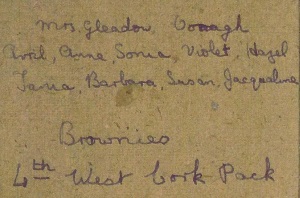 Mrs. Gleadow Oonagh
Avril, Anne Sonia, Violet, Hazel
Tania, Barbara, Susan, Jacqueline
Brownies
4th West Cork Pack